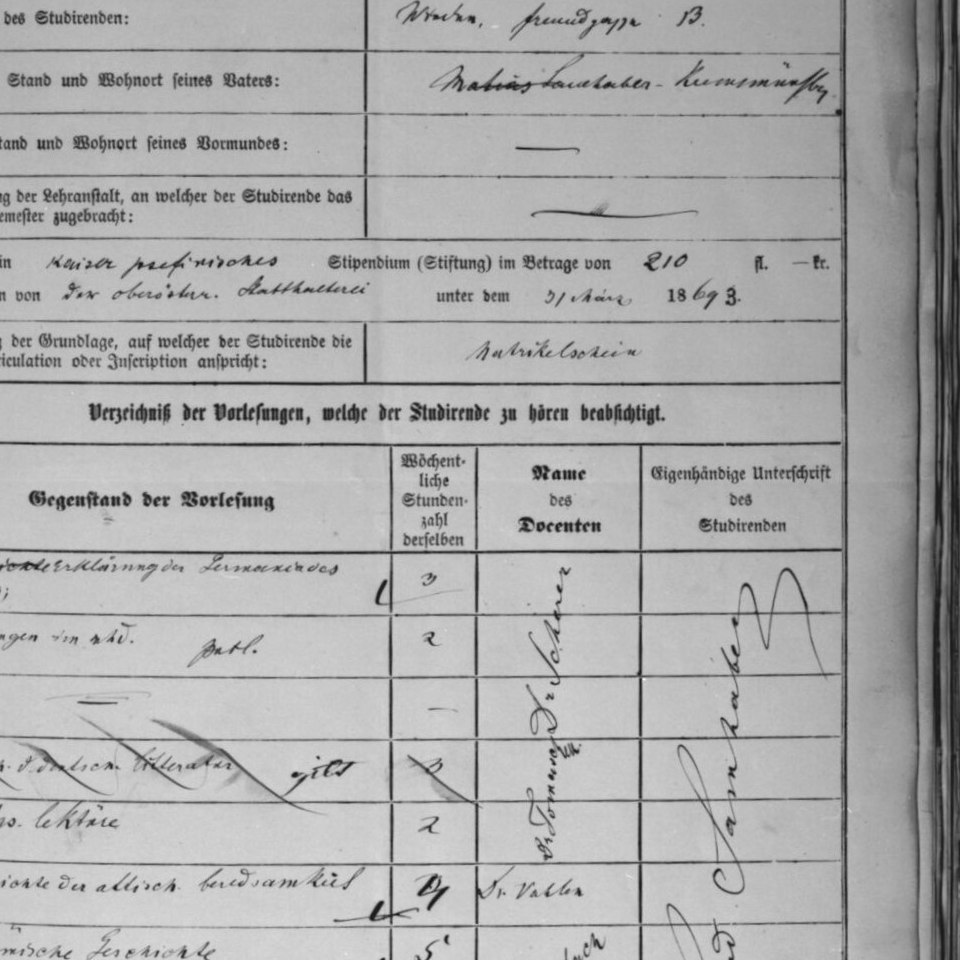 des Studirenden: Wieden,
Stand und Wohnort seines Vaters: Matias Sauhaber - Kremsmünster
tand und Wohnort seines Vormundes: —
ng der Lehranstalt, an welcher der Studirende das
emester zugebracht: —
in Kaiser josefinisches Stipendium (Stiftung) im Betrage von 210 fl. — kr.
n von der oberösterr. Statthalterei unter dem 31 März 1869 3.
g der Grundlage, auf welcher der Studirende die
riculation oder Inscription anspricht: Matrikelschein
Verzeichniß der Vorlesungen, welche der Studirende zu hören beabsichtigt.
Gegenstand der Vorlesung
Wöchent-
liche
Stunden-
zahl
derselben
Name
des
Docenten
Eigenhändige Unterschrift
des
Studirenden
Erklärung der Germania des 3
ngen im mhd. publ. 2
—
d. deutsch. Litteratur gilt 3
Dr Tomaschek Dr Scherer
os. lektüre 2
ichte der attisch. beredsamkeit Dr. Vahlen
ömische Geschichte 5